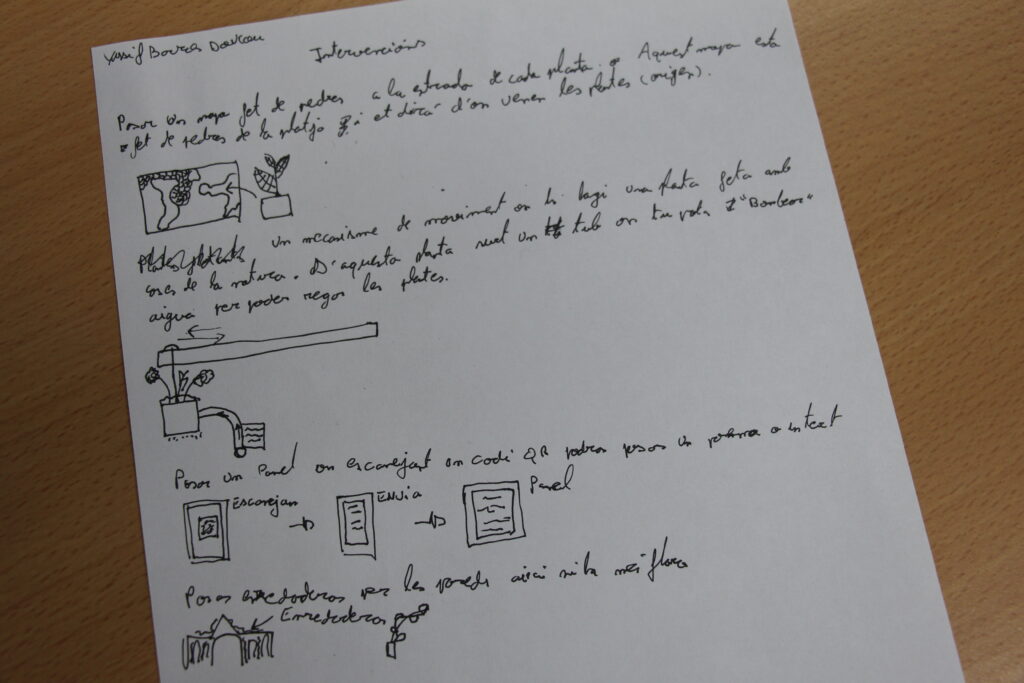 Intervencions
Posar un mapa fet de pedres a la entrada de cada planta. Aquest mapa esta
fet de pedres de la platja i et dirá d'on venen les plates (origen).
un mecanisme de moviment on hi hagi una planta feta amb
coses de la natura. D'aquesta planta surt un tub on tu pots "Bombear"
aigua per poder regar les plates.
Posar un Panel on escanejant un codi QR podras posar un poema o un text
Escanejan
ENVIA
Panel
Posar enredaderas per les parets aixi hi ha més flora
Enredaderas